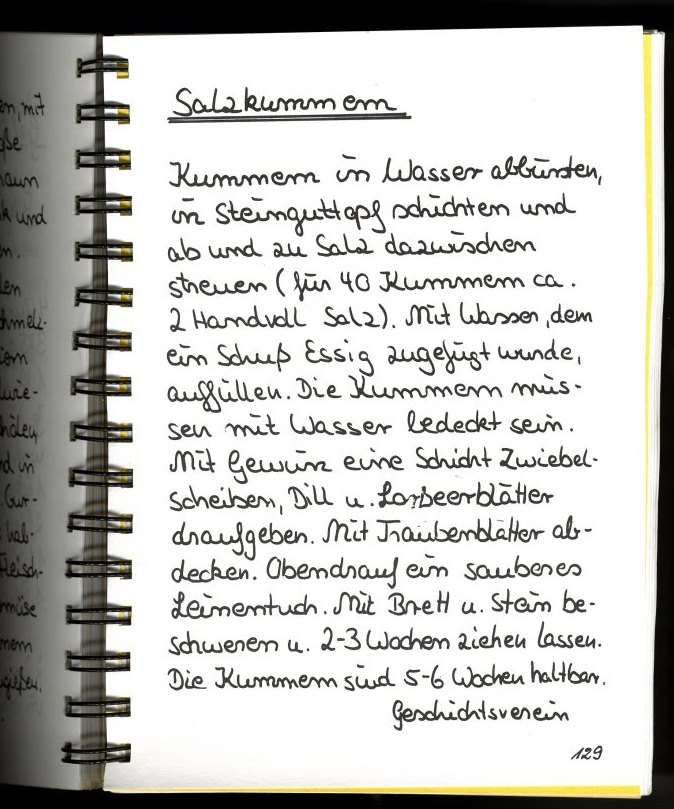 Salzkummern
Kummern in Wasser abbürsten,
in Steinguttopf schichten und
ab und zu Salz dazwischen
streuen (für 40 Kummern ca.
2 Handvoll Salz). Mit Wasser, dem
ein Schuß Essig zugefügt wurde,
auffüllen. Die Kummern müs-
sen mit Wasser bedeckt sein.
Mit Gewürz eine Schicht Zwiebel-
scheiben, Dill u. Lorbeerblätter
draufgeben. Mit Traubenblätter ab-
decken. Obendrauf ein sauberes
Leinentuch. Mit Brett u. Stein be-
schweren u. 2-3 Wochen ziehen lassen.
Die Kummern sind 5-6 Wochen haltbar.
Geschichtsverein
129
en, mit
k und
en.
den
chmel-
wie-
d in
Gur-
hab-
Fleisch-
müse